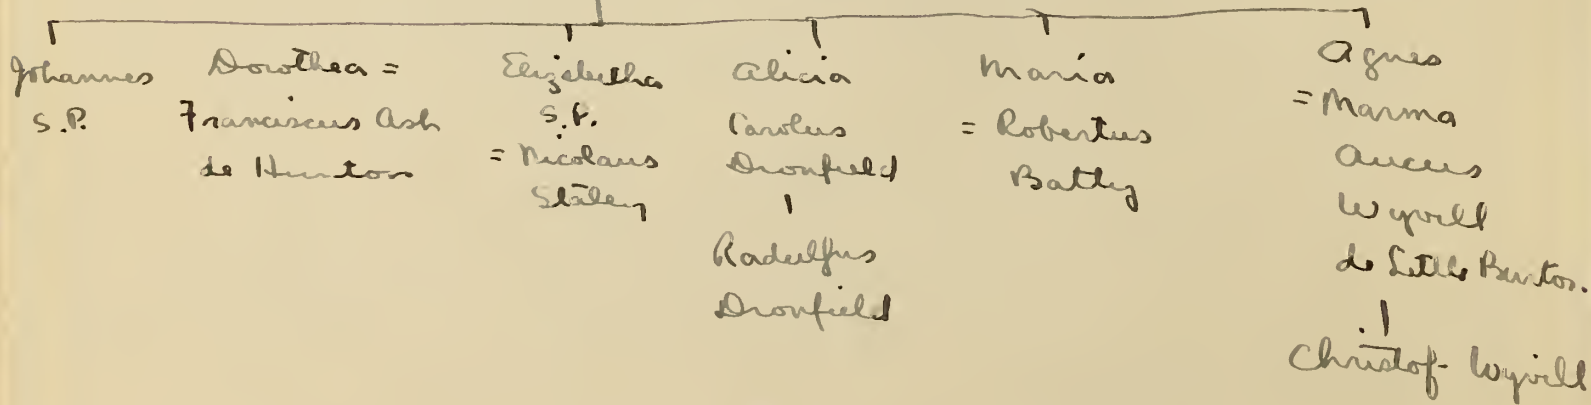 Johannes
S.P.
Dorothea =
Franciscus Ash
de Hunton
Elizabetha
S.P.
= Nicolaus
Staley
Alicia
Carolus
Dronfield
Radulfus
Dronfield
Maria
= Robertus
Batty
Agnes
= Marma
Wyvill
de Little Burton.
Christof- Wyvill